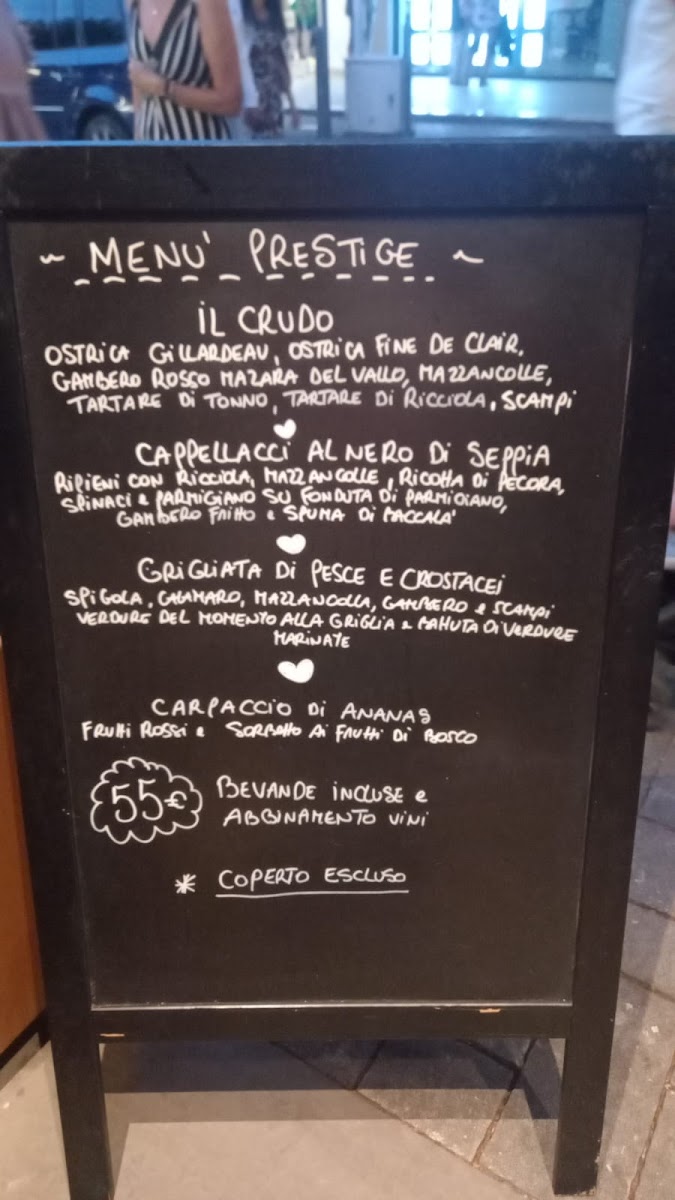 ~ MENU' PRESTIGE ~
IL CRUDO
OSTRICA GILLARDEAU, OSTRICA FINE DE CLAIR,
GAMBERO ROSSO MAZARA DEL VALLO, MAZZANCOLLE,
TARTARE DI TONNO, TARTARE DI RICCIOLA, SCAMPI
CAPPELLACCI AL NERO DI SEPPIA
RIPIENI CON RICCIOLA, MAZZANCOLLE, RICOTTA DI PECORA,
SPINACI e PARMIGIANO SU FONDUTA DI PARMIGIANO,
GAMBERO FRITTO e SPUMA DI BACCALA'
GRIGLIATA DI PESCE E CROSTACEI
SPIGOLA, CALAMARO, MAZZANCOLLA, GAMBERO e SCAMPI
VERDURE DEL MOMENTO ALLA GRIGLIA e BATTUTA DI VERDURE
MARINATE
CARPACCIO DI ANANAS
FRUTTI ROSSI e SORBETTO AI FRUTTI DI BOSCO
55€ BEVANDE INCLUSE e
ABBINAMENTO VINI
* COPERTO ESCLUSO